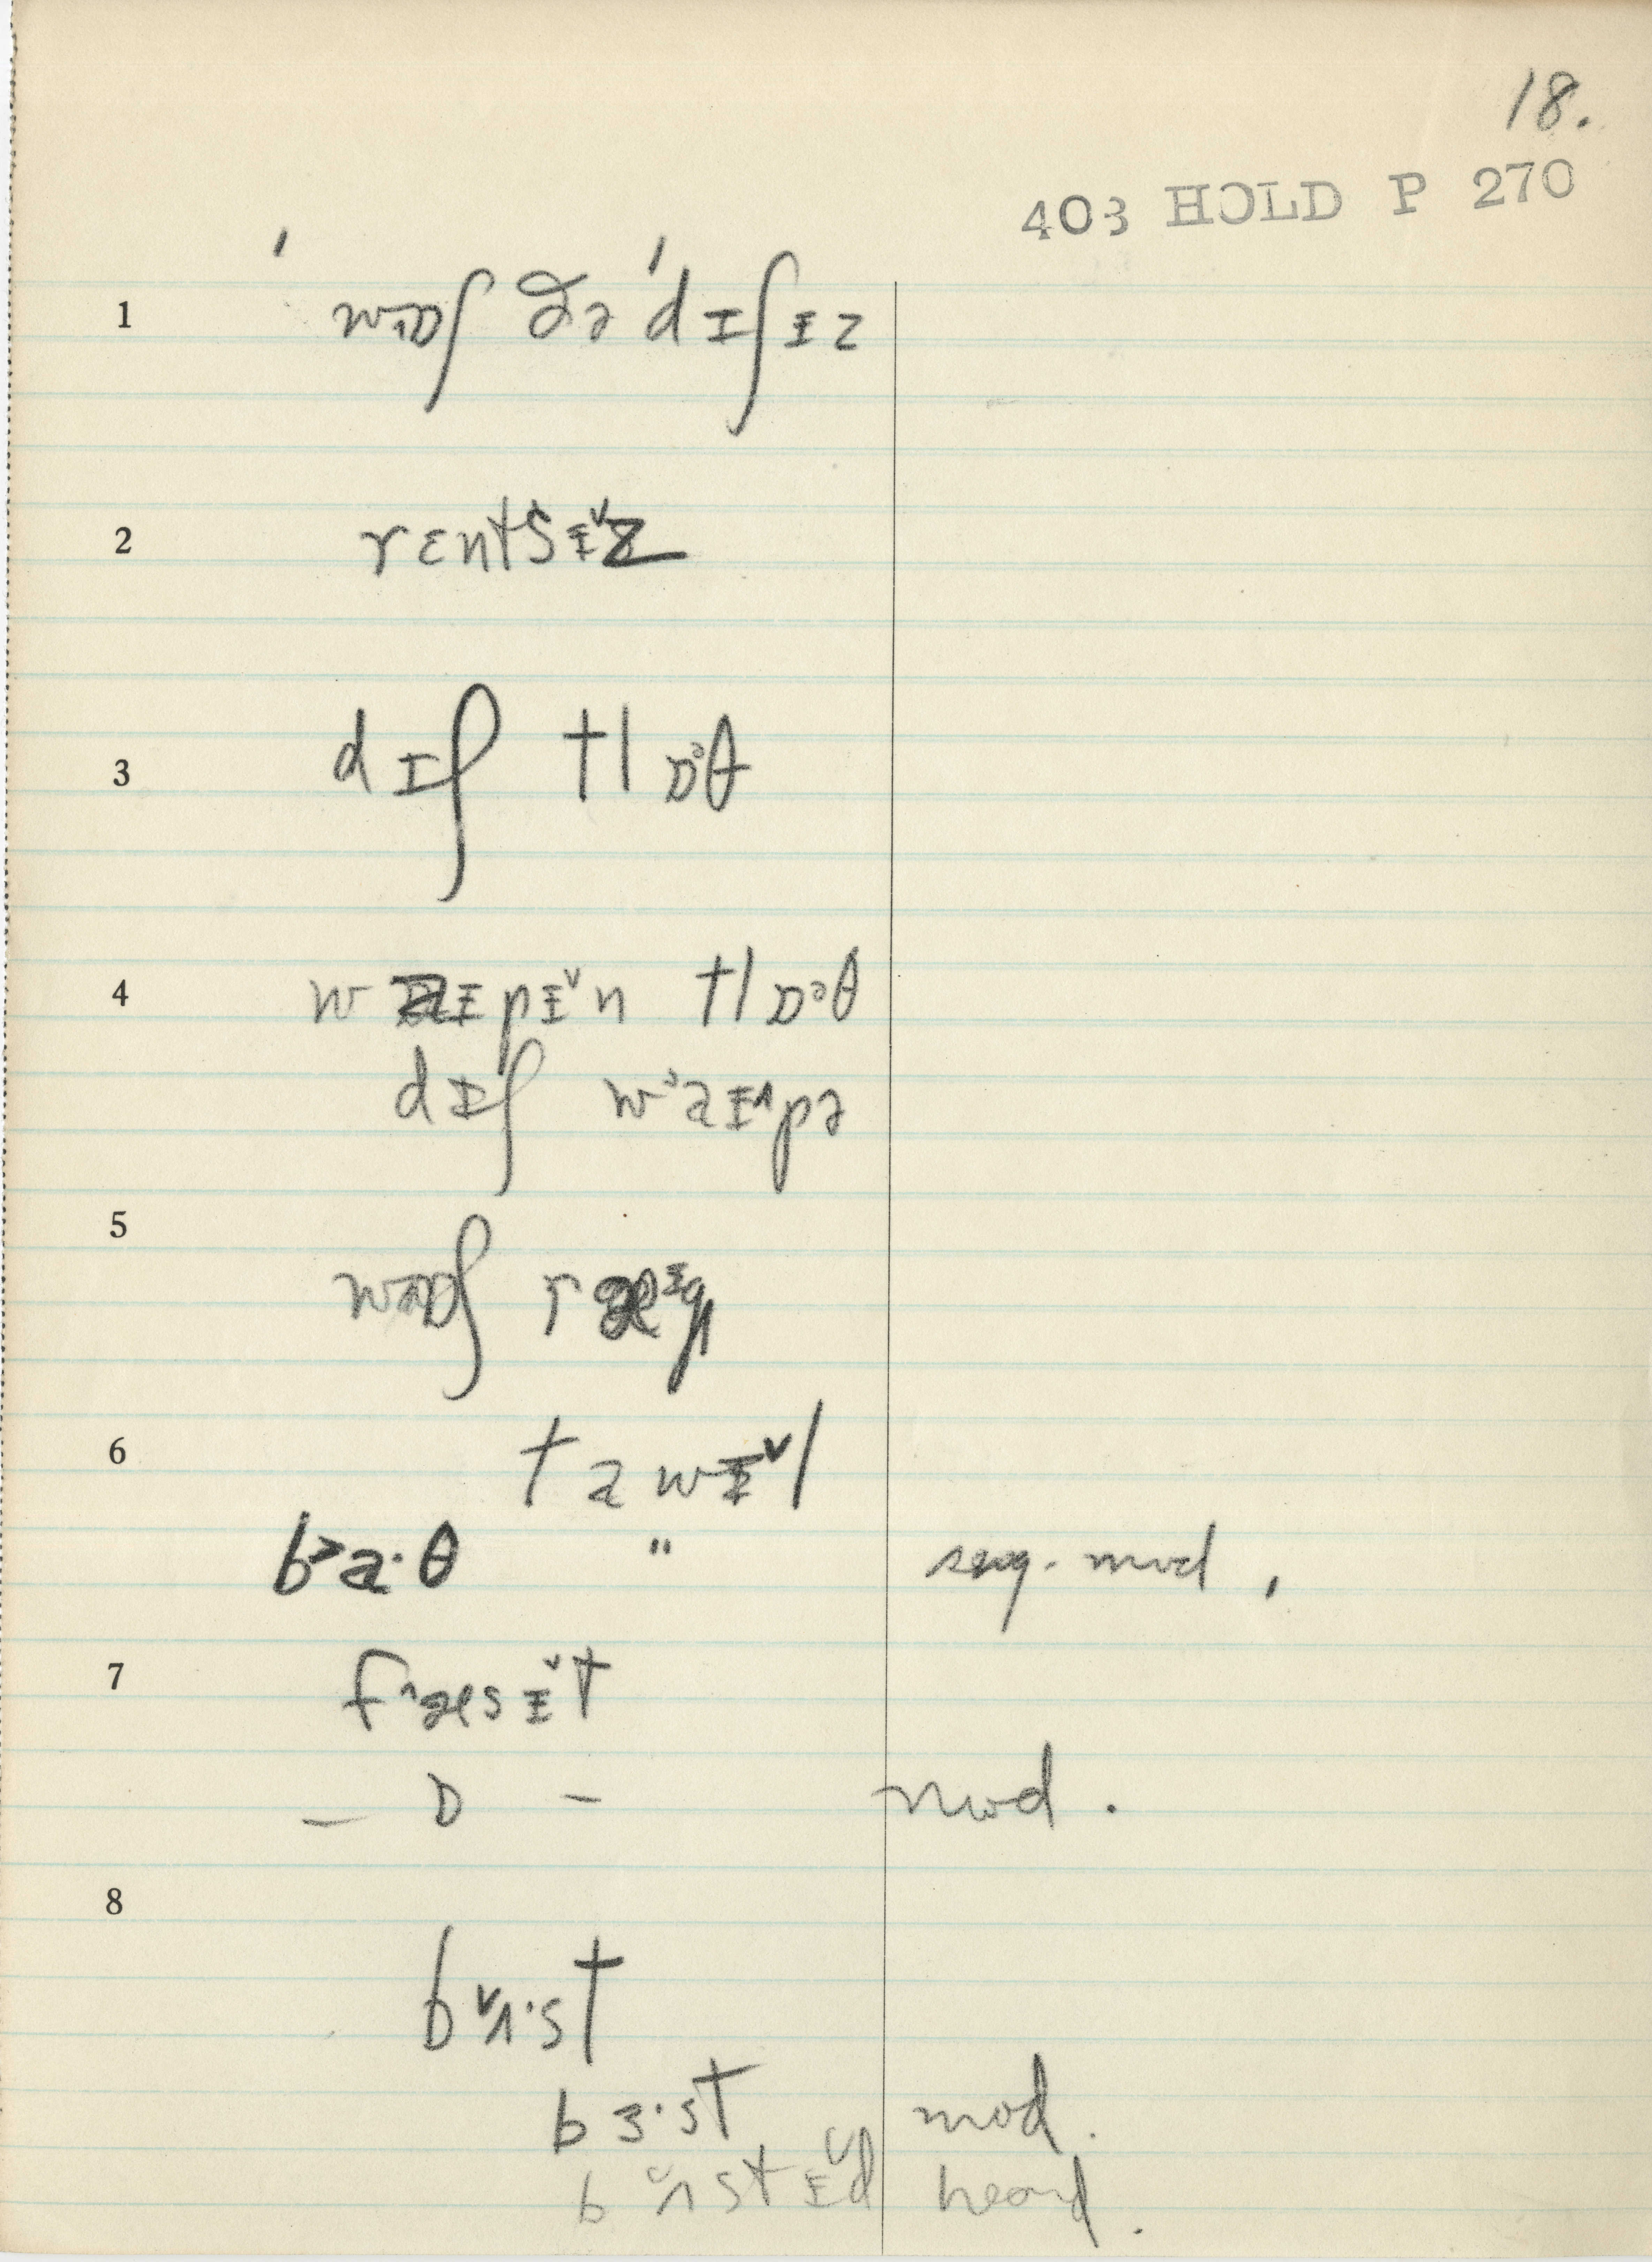 18.
403 HOLD P 270
1 ˈwɒʃ ðə ˈdɪʃɪz
2 rɛntsɪ˅z
3 dɪʃ tlɒᵊθ
4 waɪpɪ˅n tlɒᵊθ
dɪʃ wˀaɪ˄pə
5 wɒʃ ræᶦg
6 tawɪ˅l
b˃a·θ " seg. mod.
7 f˄æsɪ˅t
– ɒ – mod.
8
b˅ʌ·st
bɜ·st mod.
b˅ʌstɪ˅d heard.